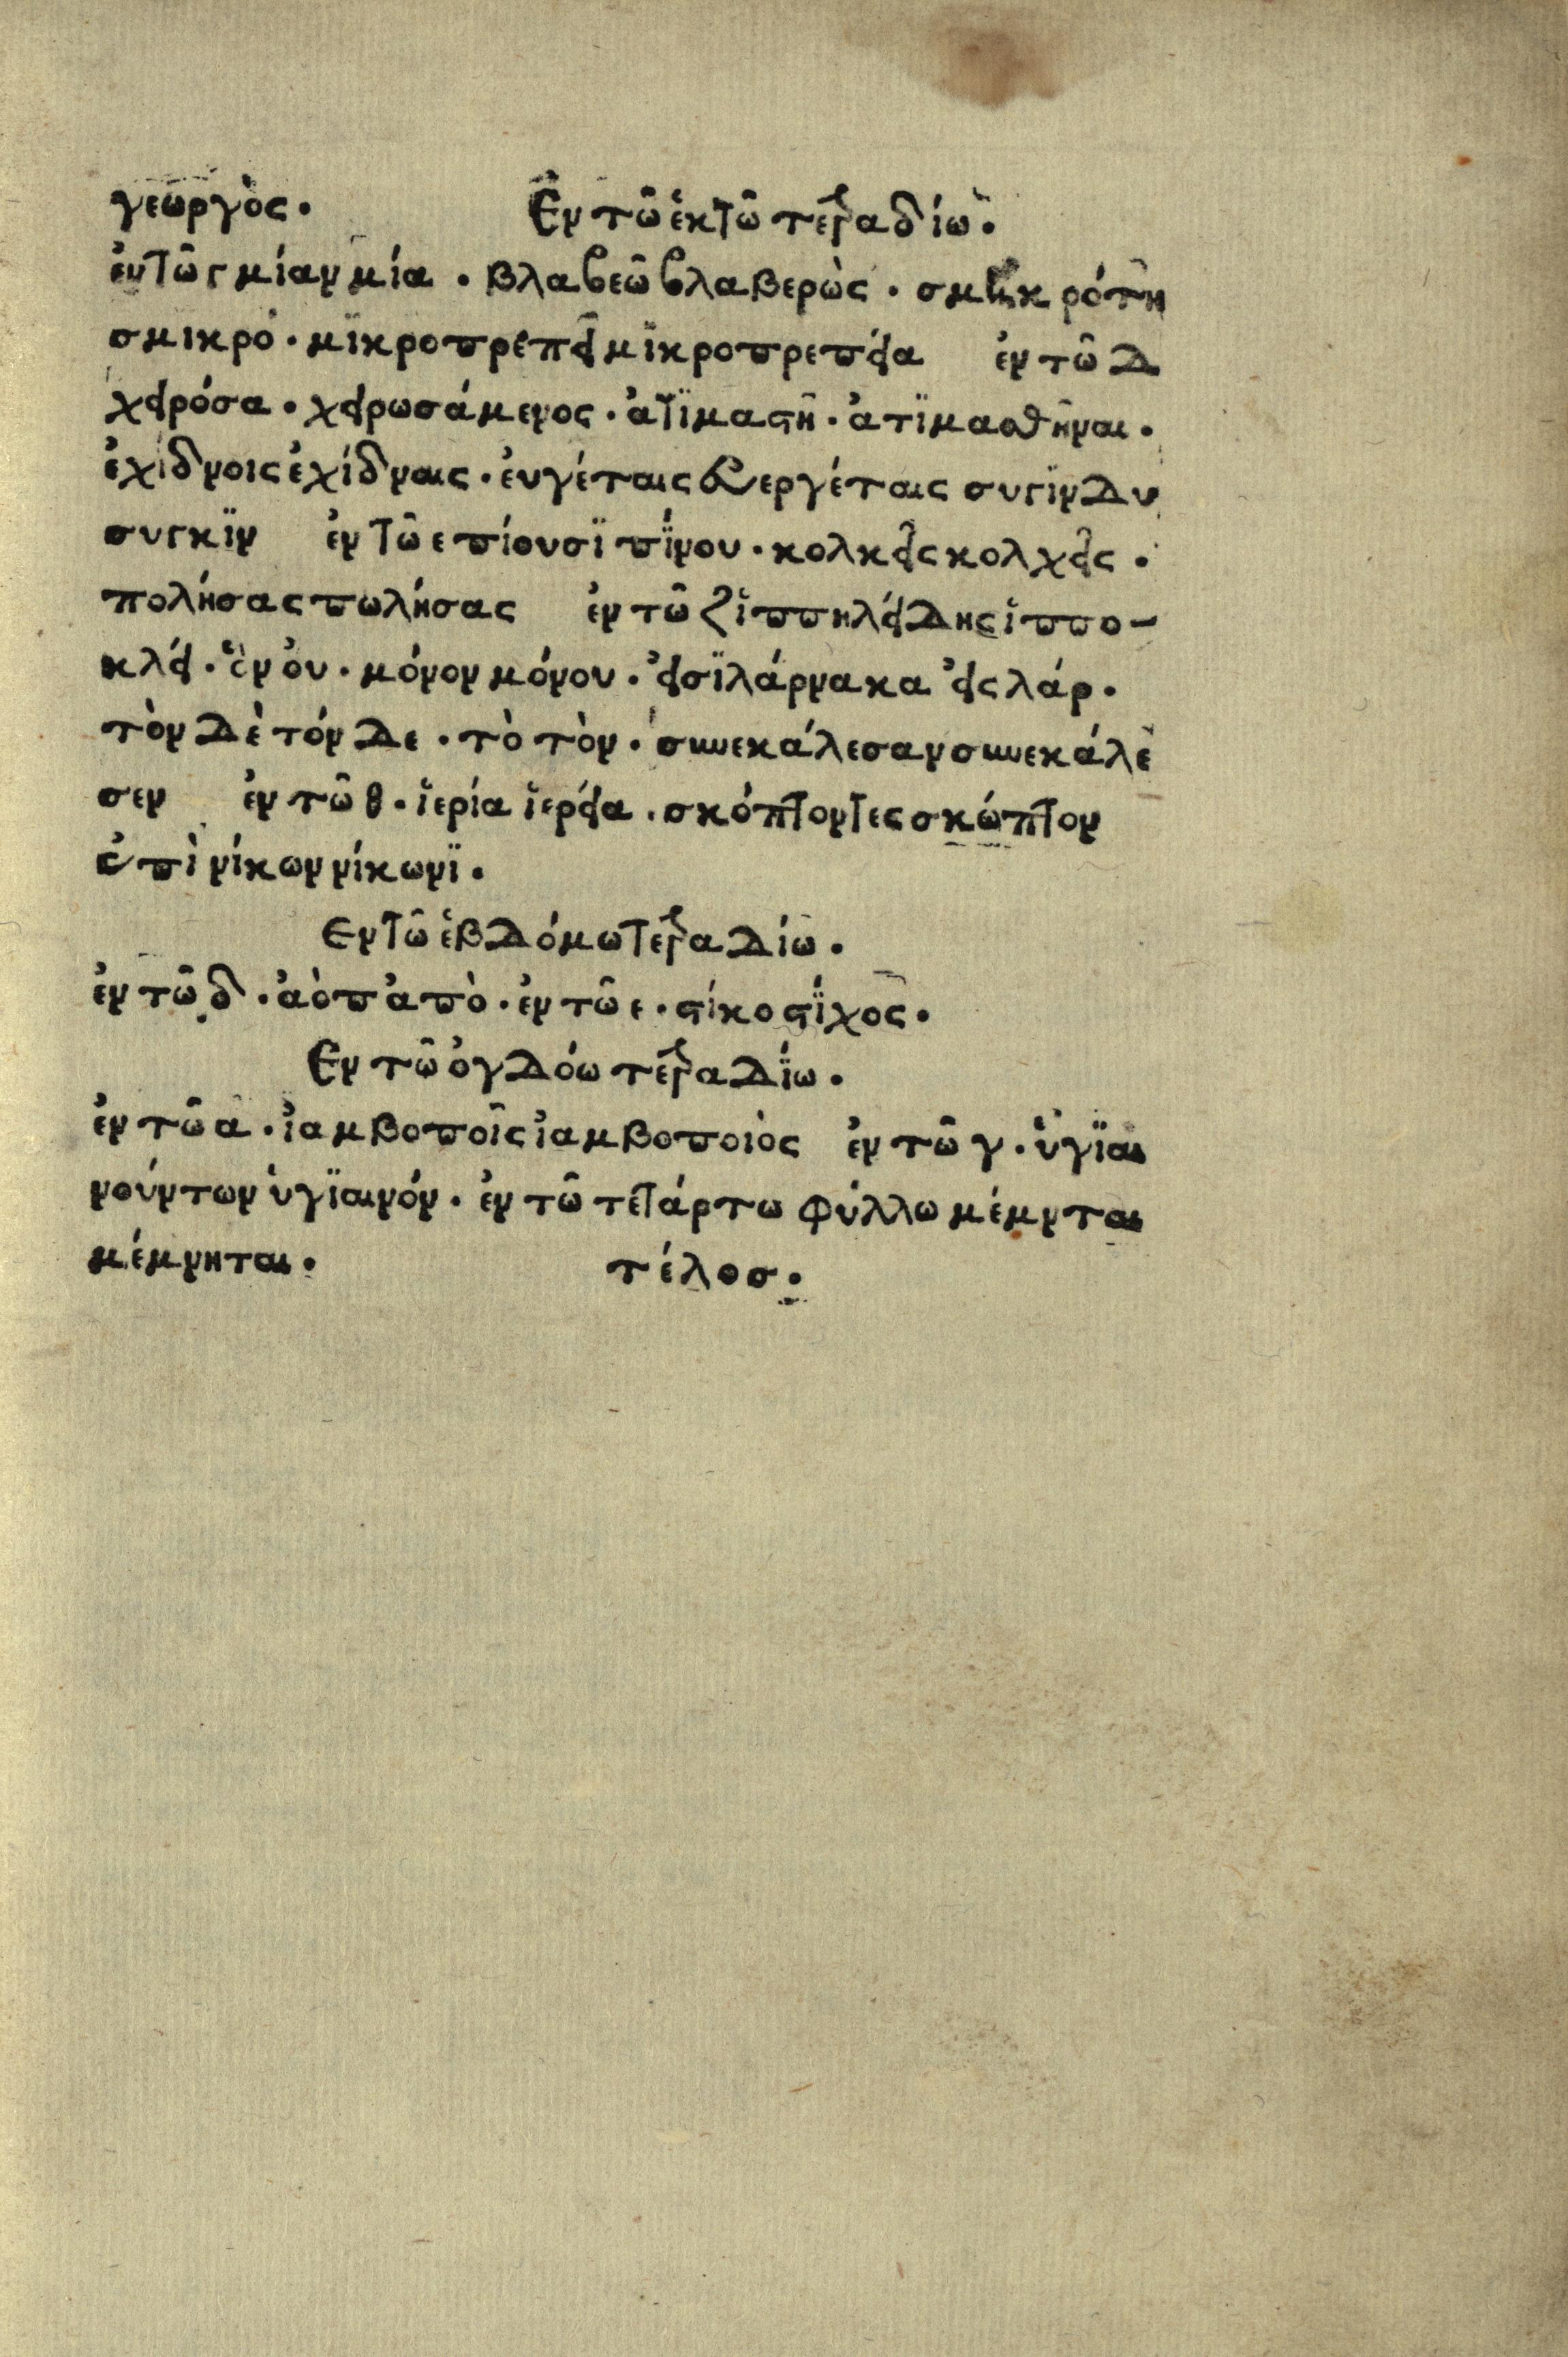 γεωργὸς. Ἐν τῶ ἑκτῶ τετραδίω.
ἐντῶ γ μίαν μία . βλαβεῶ βλαβερὼς . ροτῆ
σμικρό . μϊκροπρέπει μϊκροπρεπεία ἐν τῶ δ
χειρόσα . χειρωσάμενος . ἀτϊμαστῆ . ἀτϊμασθῆναι .
ἐχίδνοις ἐχίδναις . ἐυγέταις ἐυεργέταις συγϊν δυ
συγκϊν ἐν τῶ ε πίουσϊ πΐνου . κολκεῖς κολχεῖς .
πολήσας πωλήσας ἐν τῶ ζ ἵππηλείδης ἵππο-
κλεί . ὃν ὀυ . μόνον μόνου . ἐισϊλάρνακα ἐις λάρ .
τὸν δὲ τόνδε . τὸ τὸν . συνεκάλεσαν συνεκάλε
σεν ἐν τῶ θ . ἵερία ἵερεία . σκόπτοντες σκώπτον
ἐπὶ νίκων νίκωνϊ .
Εν τῶ ἑβδόμω τετραδίω .
ἐν τῶ δ . ἀὸπ ἀπὸ . ἐν τῶ ε . στίκο στΐχος .
Ἐν τῶ ὀγδόω τετραδΐω .
ἐν τῶ α . ἰαμβοποῖς ἰαμβοποιὸς ἐν τῶ γ . ὑγϊαι
νούντων ὑγϊαινόν . ἐν τῶ τετάρτω φύλλω μέμνται
μέμνηται . τέλοσ .